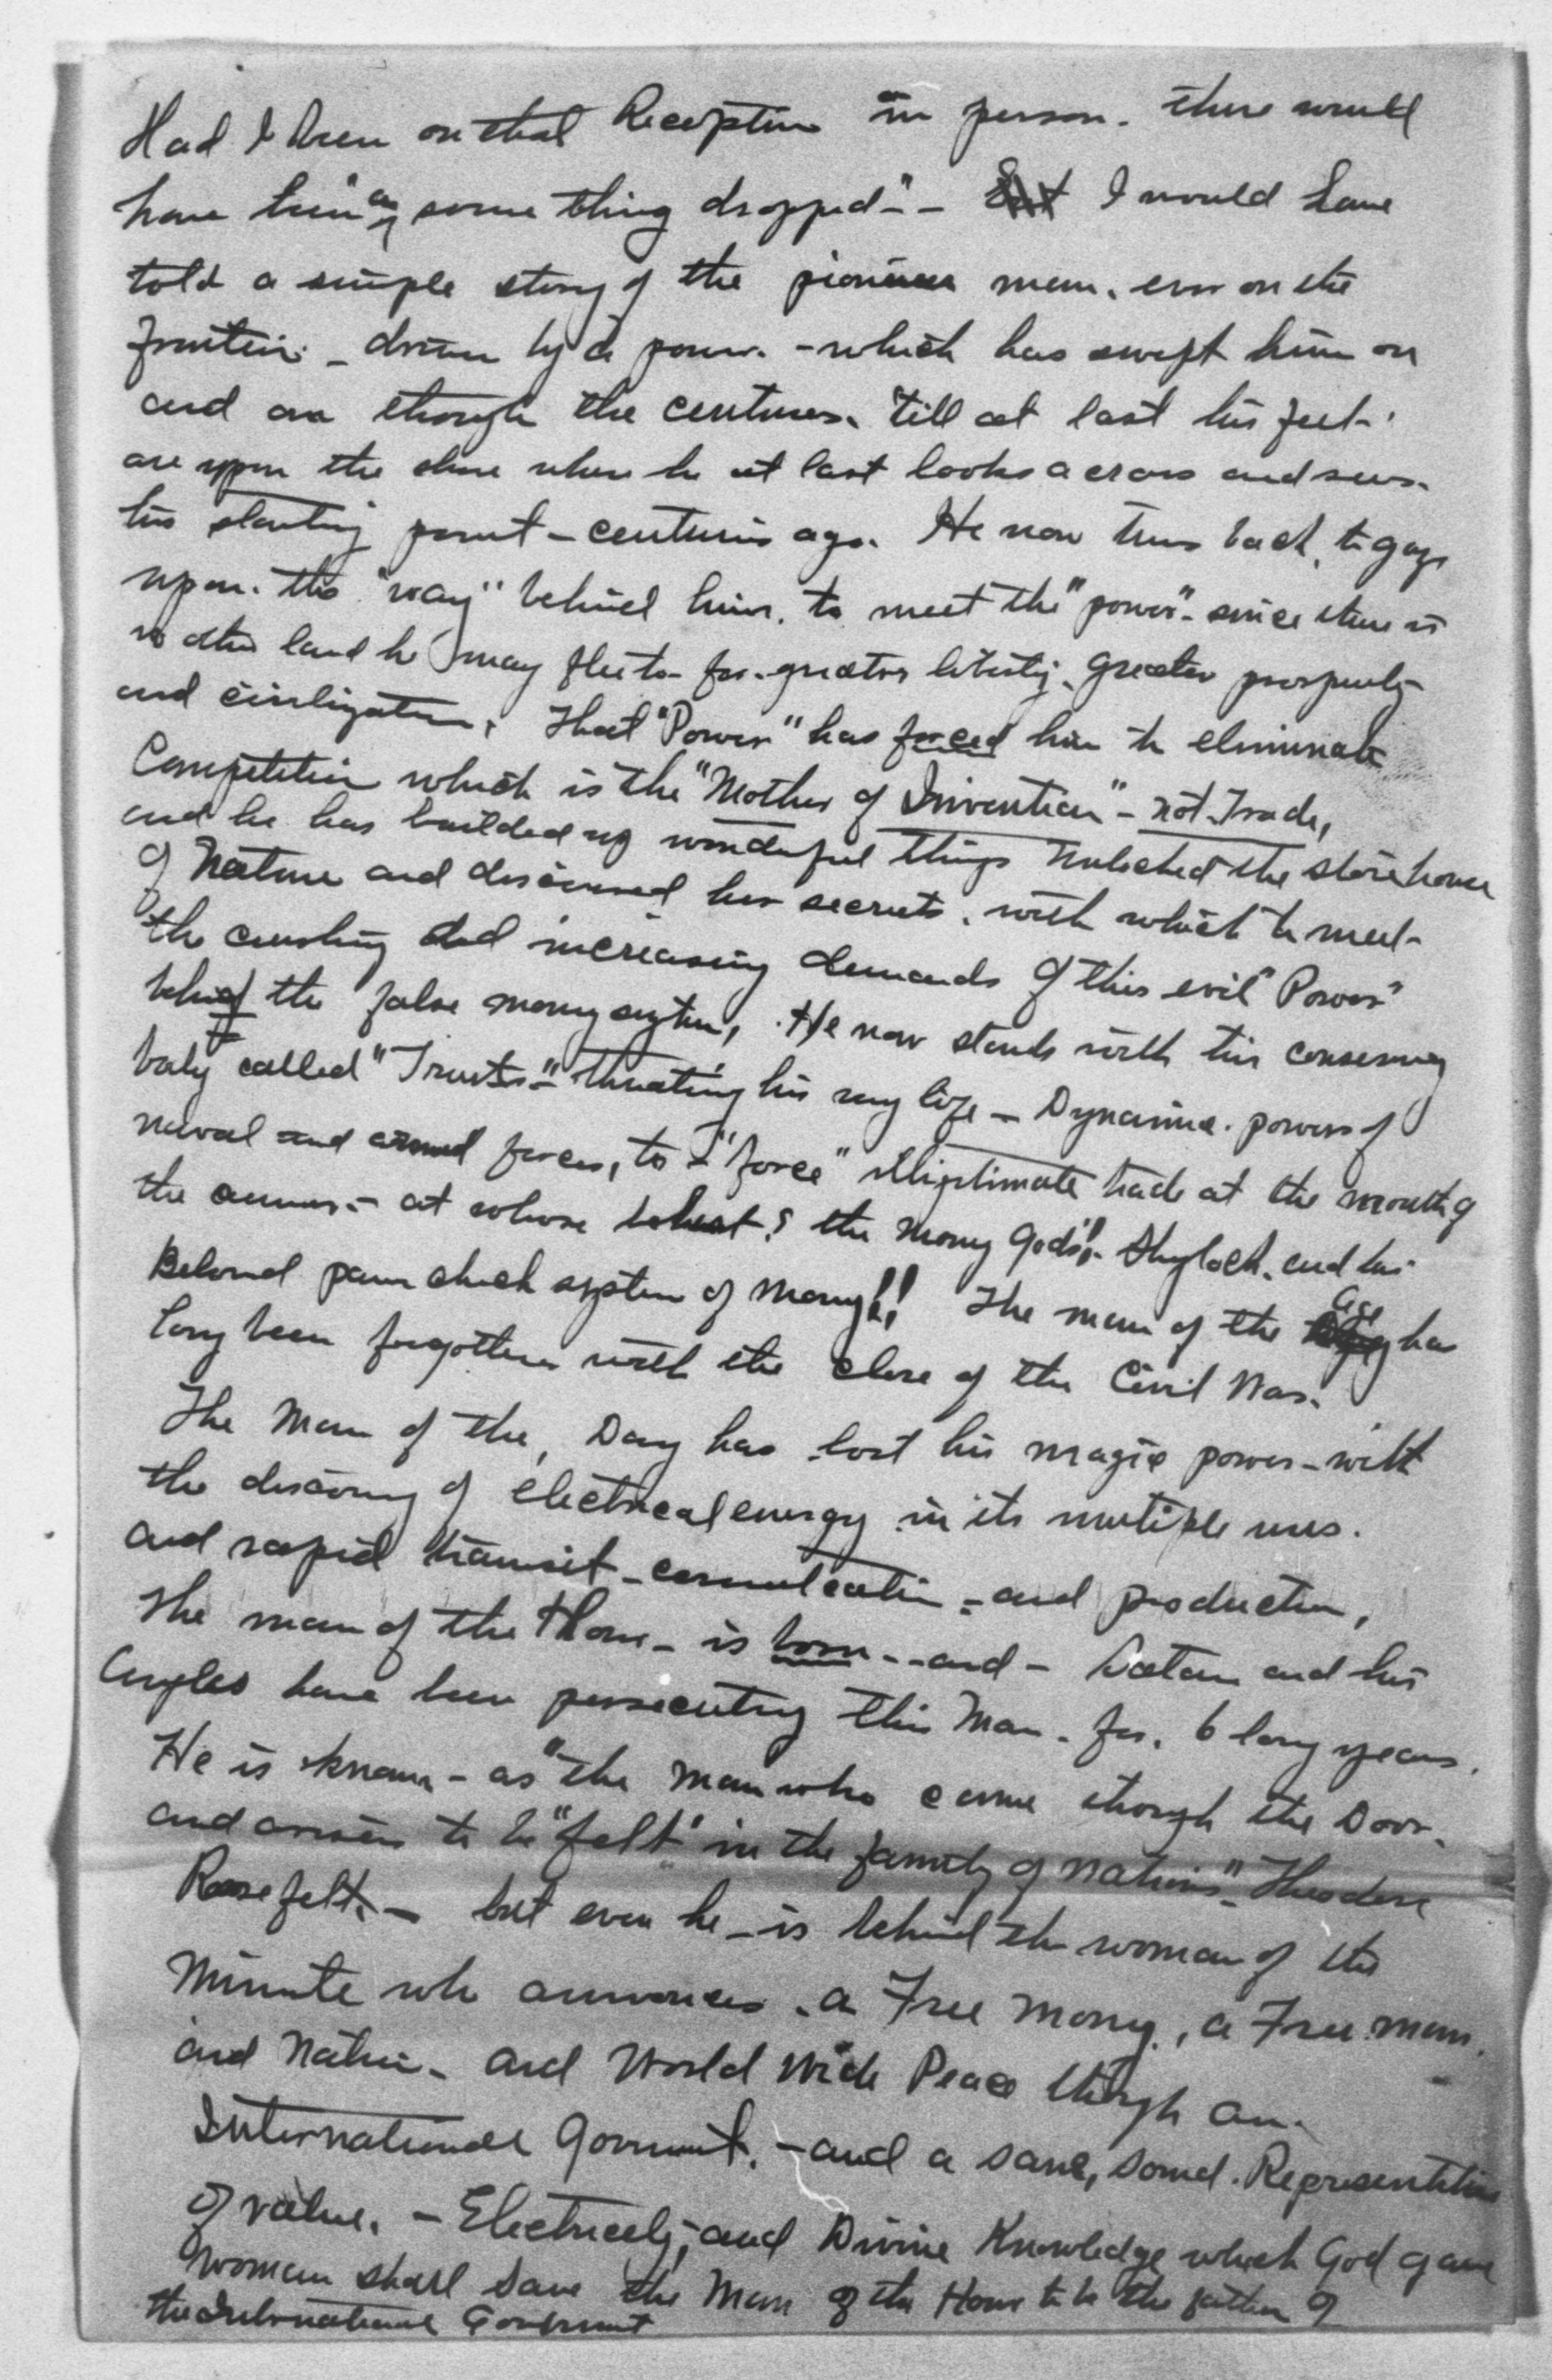 Had I been on that Reception in person. there would
have been "a some thing dropped" - I would have
told a simple story of the pioneer man. ever on the
frontier - driven by a power. - which has swept him on
and on through the centures. 'till at last his feet -
are upon the shore where he at last looks across and sees.
his starting point - centuries ago. He now turns back, to gaze
upon. the "way" behind him. to meet the "power" - since there is
no other land he may flee to - for - greater liberty. greater prosperity
and civilization. That "Power" has forced him to eliminate
Competition which is the "Mother of Invention" - not Trade,
and he has builded up wonderful things unlocked the store house
of Nature and discovered her secrets. with which to meet -
the crushing and increasing demands of this evil "Power"
behind the false money system, He now stands with this consuming
baby called "Trusts" - threating his very life - Dynamic. powers of
naval and armed forces, to "force" illigitimate trade at the mouth of
the cannon - at whose behest? the Money Gods!! - Shylock. and his
Beloved pawn check system of Money!! The man of the age has
long been forgotten with the close of the Civil War.
The Man of the, Day has lost his magic power - with
the discovery of electrical energy in its multiple uses.
and rapid transit - - and production,
The man of the Hour - is born - - and - Satan and his
Angles have been persecuting this Man. for. 6 long years.
He is known - as "the man who came through the Door.
and arisen to be "felt" in the family of nations" - Theodore
Rosefelt. - but even he - is behind the woman of the
Minute who announces. a Free Money., a Free man.
and Nation - and World Wide Peace through an.
International Goverment. - and a sane, sound. Representative
of value. - Electricely, and Divine Knowledge which God gave
Woman shall save the Man of the Hour to be the father of
the International Goverment